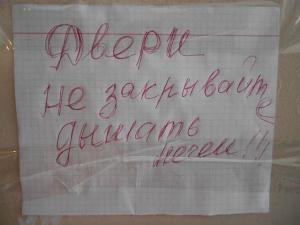 Двери
не закрывайте
дышать
нечем!!!